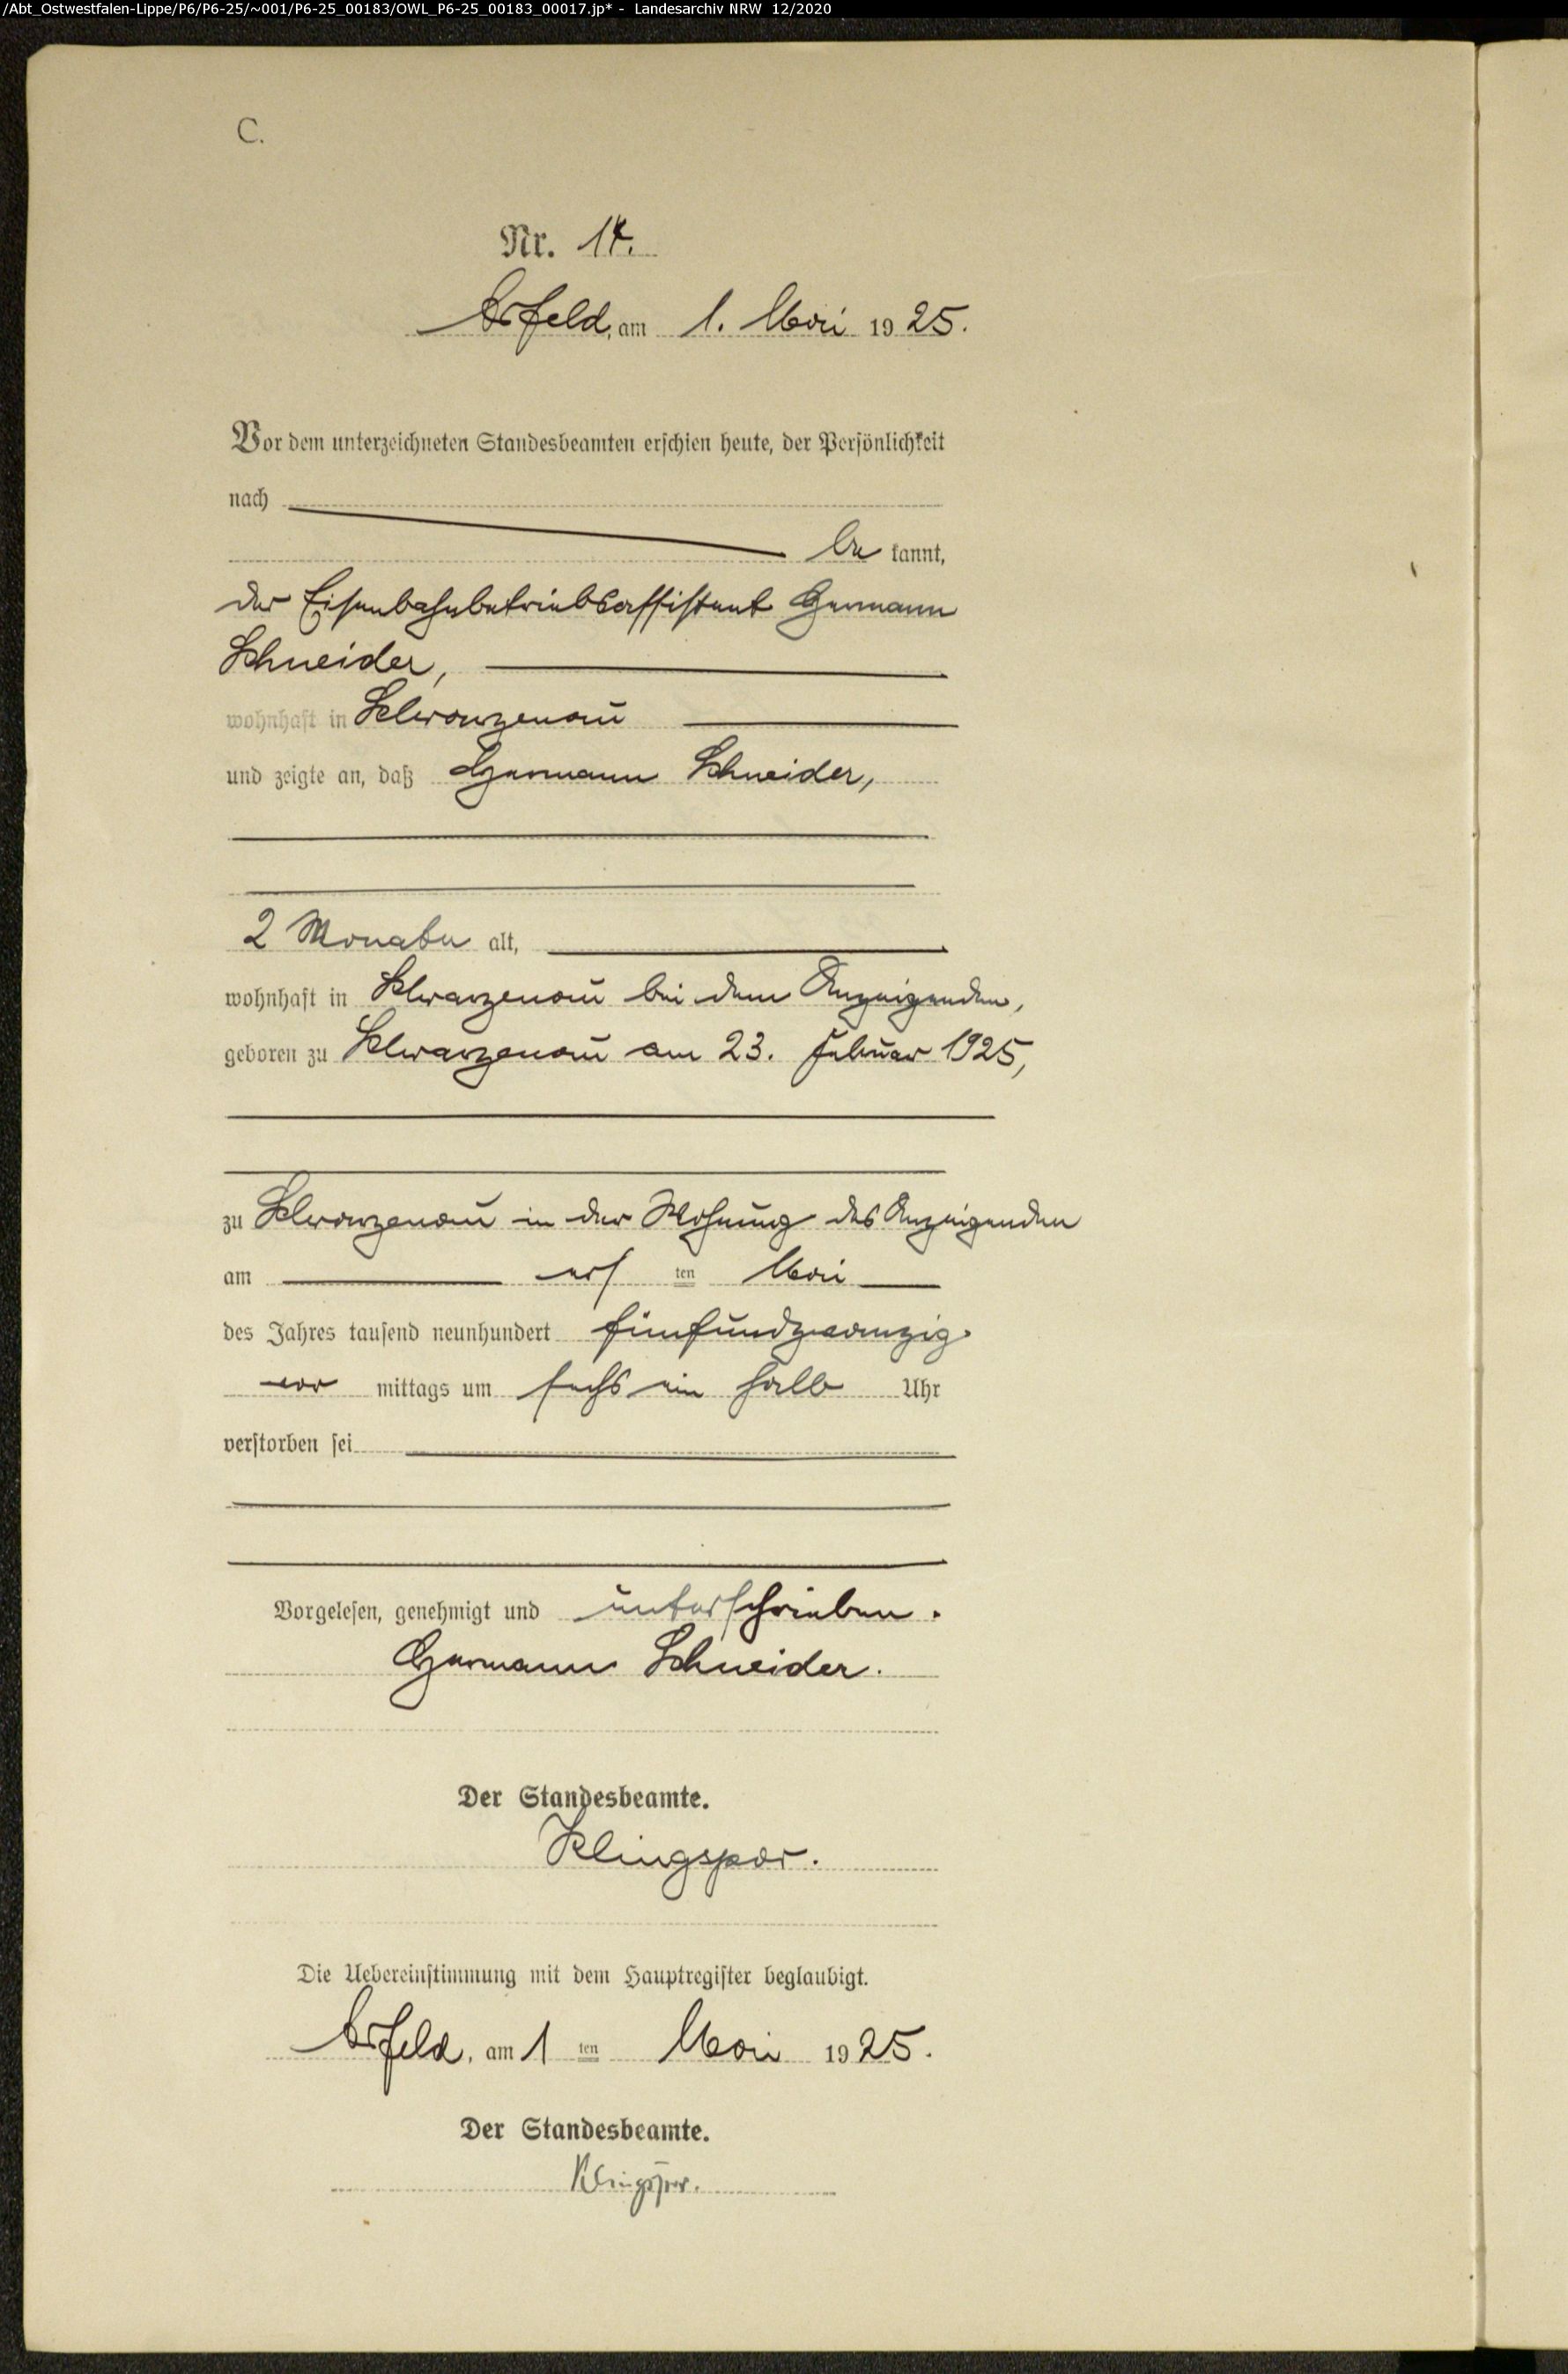 /Abt_Ostwestfalen-Lippe/P6/P6-25/~001/P6-25_00183/OWL_P6-25_00183_00017.jp* - Landesarchiv NRW 12/2020
C.
Nr. 14.
Arfeld, am 1. Mai 1925.
Vor dem unterzeichneten Standesbeamten erschien heute, der Persönlichkeit
nach
be kannt,
der Eisenbahnbetriebsassistent Hermann
Schneider,
wohnhaft in Schwarzenau
und zeigte an, daß Hermann Schneider,
2 Monate alt,
wohnhaft in Schwarzenau bei dem Anzeigenden,
geboren zu Schwarzenau am 23. Februar 1925,
zu Schwarzenau in der Wohnung des Anzeigenden
am ersten Mai
des Jahres tausend neunhundert fünfundzwanzig
vor mittags um sechs ein halb Uhr
verstorben sei
Vorgelesen, genehmigt und unterschrieben.
Hermann Schneider.
Der Standesbeamte.
Klingspor.
Die Uebereinstimmung mit dem Hauptregister beglaubigt.
Arfeld, am 1 ten Mai 1925.
Der Standesbeamte.
Klingspor.